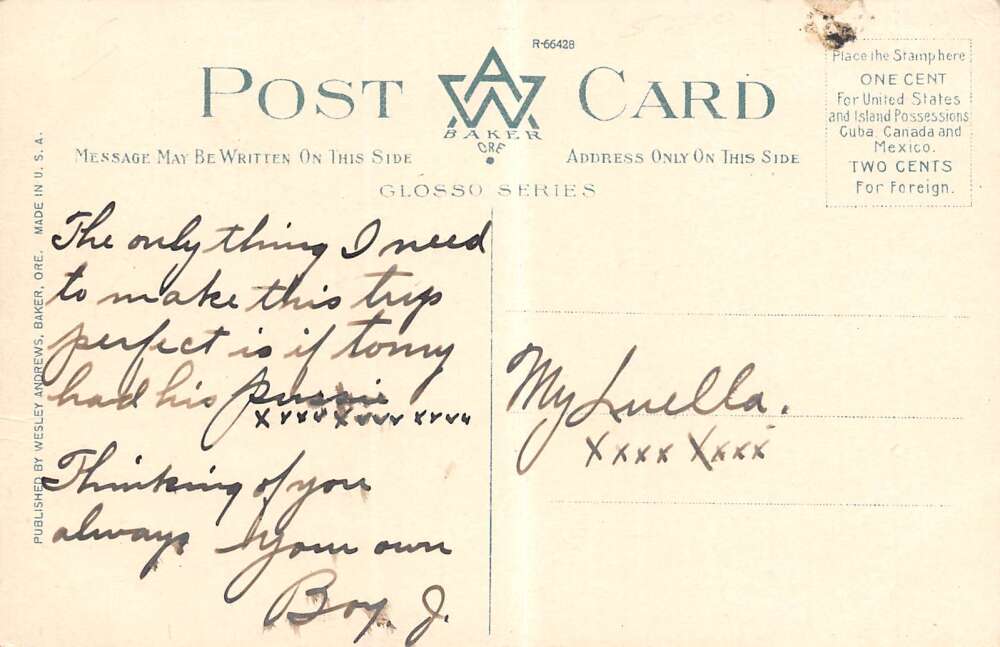 R-66428
POST CARD
AW
BAKER
ORE.
MESSAGE MAY BE WRITTEN ON THIS SIDE
ADDRESS ONLY ON THIS SIDE
GLOSSO SERIES
Place the Stamp here
ONE CENT
For United States
and Island Possessions
Cuba, Canada and
Mexico.
TWO CENTS
For Foreign.
PUBLISHED BY WESLEY ANDREWS, BAKER, ORE. MADE IN U. S. A.
The only thing I need
to make this trip
perfect is if tomy
had his pussie
xxxx xxxx xxxx
Thinking of you
always Your own
Boy. J.
My Luella.
xxxx xxxx